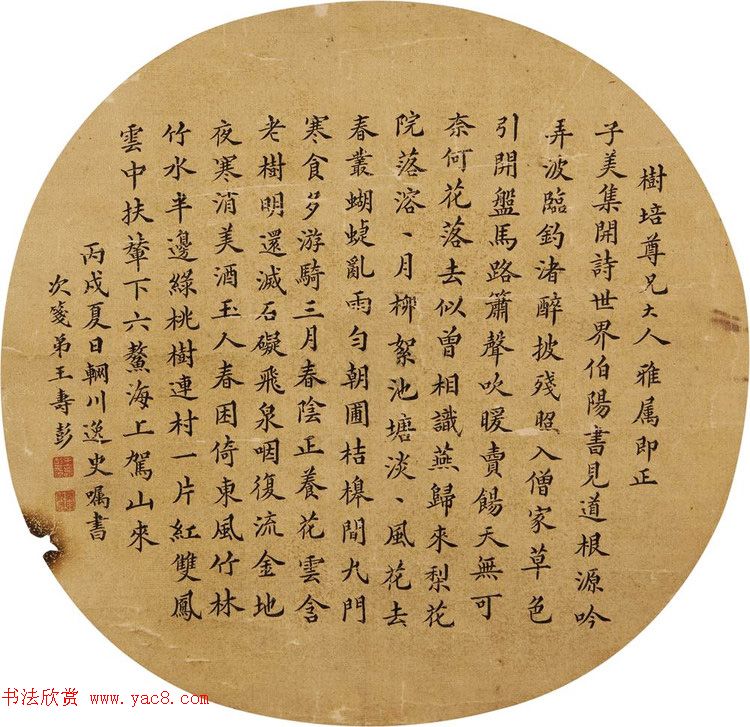 樹培尊兄大人雅属即正
子美集開詩世界伯陽書見道根源吟
弄波臨釣渚醉披殘照入僧家草色
引開盤馬路簫聲吹暖賣餳天無可
奈何花落去似曾相識燕歸來梨花
院落溶、月柳絮池塘淡、風花去
春叢蝴蜨亂雨勻朝圃桔橰閒九門
寒食多游騎三月春陰正養花雲含
老樹明還滅石礙飛泉咽復流金地
夜寒消美酒玉人春困倚東風竹林
竹水半邊綠桃樹連村一片紅雙鳳
雲中扶輦下六鰲海上駕山來
丙戌夏日輞川逸史囑書
次箋弟王壽彭
书法欣赏 www.yac8.com